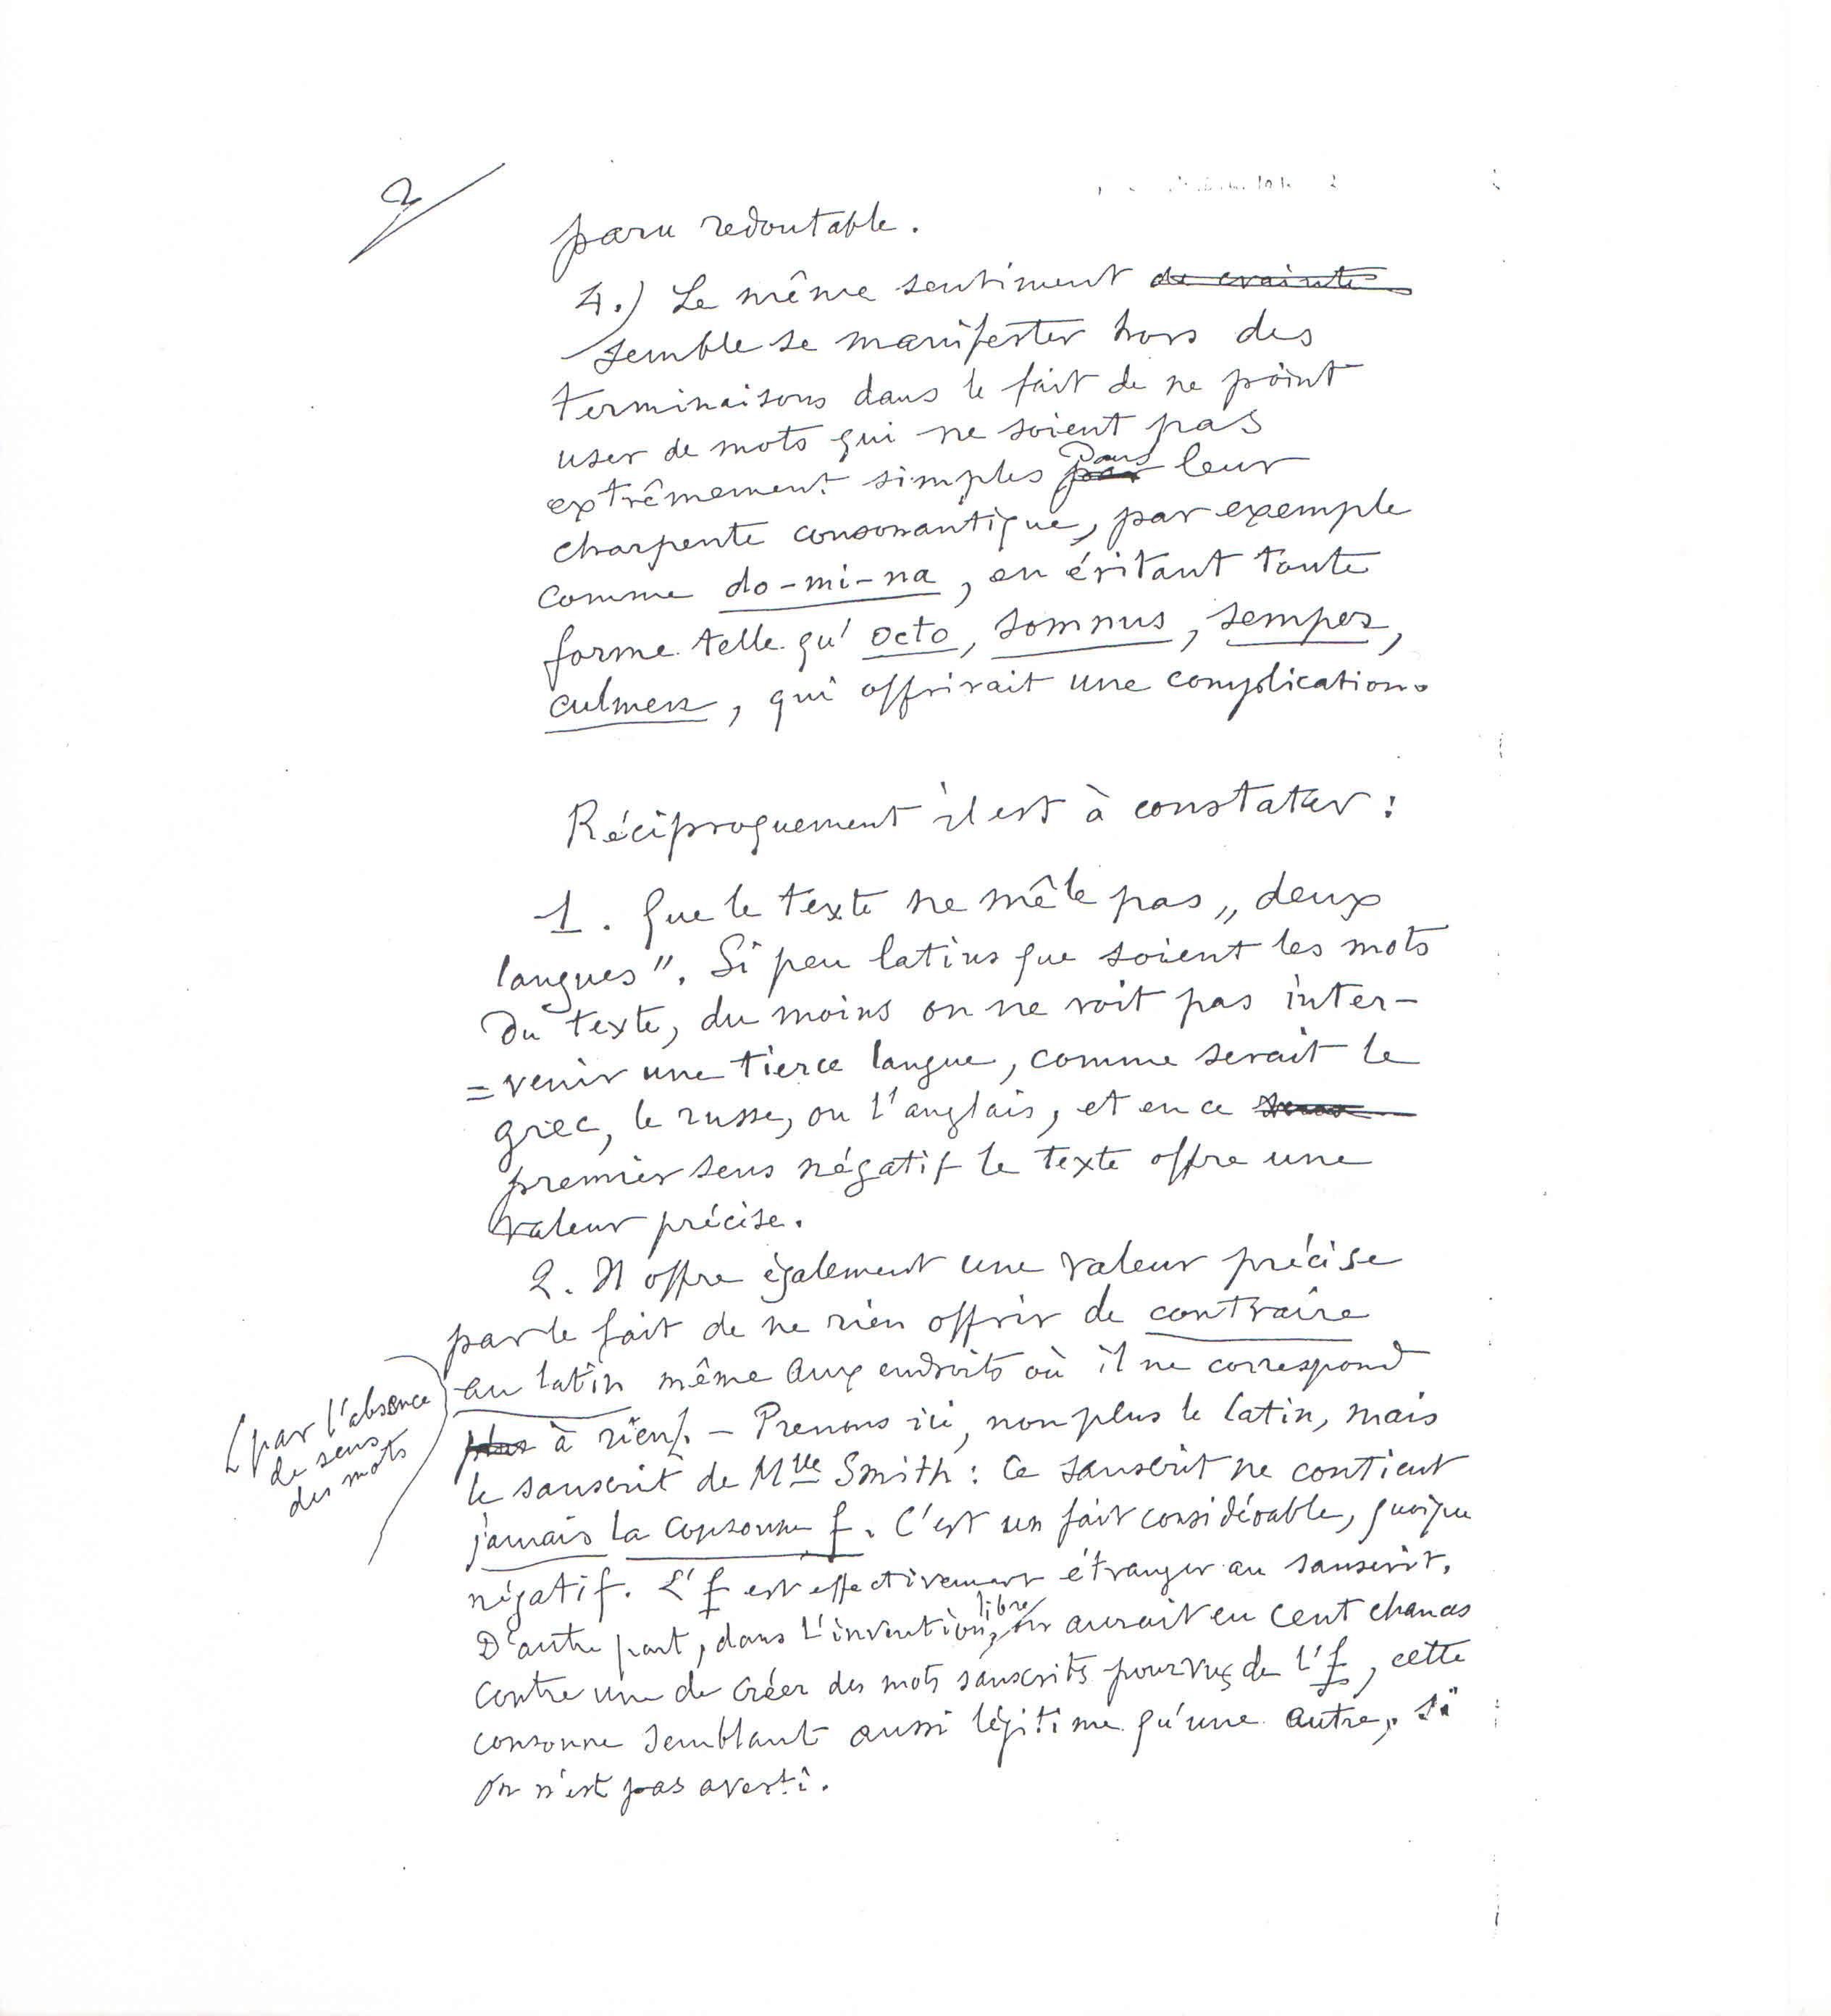 2
paru redoutable.
4.) Le même sentiment de crainte
semble se manifester hors des
terminaisons dans le fait de ne point
user de mots qui ne soient pas
extrêmement simples par dans leur
charpente consonantique, par exemple
comme do-mi-na, en évitant toute
forme telle qu'octo, somnus, semper,
culmen, qui offrirait une complication.
Réciproquement il est à constater :
1. Que le texte ne mêle pas „deux
langues". Si peu latins que soient les mots
du texte, du moins on ne voit pas inter-
=venir une tierce langue, comme serait le
grec, le russe, ou l'anglais, et en ce sens
premier sens négatif le texte offre une
valeur précise.
2. Il offre également une valeur précise
par le fait de ne rien offrir de contraire
au latin même aux endroits où il ne correspond
plus à rien[. – Prenons ici, non plus le latin, mais
[par l'absence
de sens
des mots
le sanscrit de Mlle Smith : Ce sanscrit ne contient
jamais la consonne f. C'est un fait considérable, quoique
négatif. L'f est effectivement étranger au sanscrit.
D'autre part, dans l'invention libre, on aurait eu cent chances
contre une de créer des mots sanscrits pourvus de l'f, cette
consonne semblant aussi légitime qu'une autre, si
on n'est pas averti.